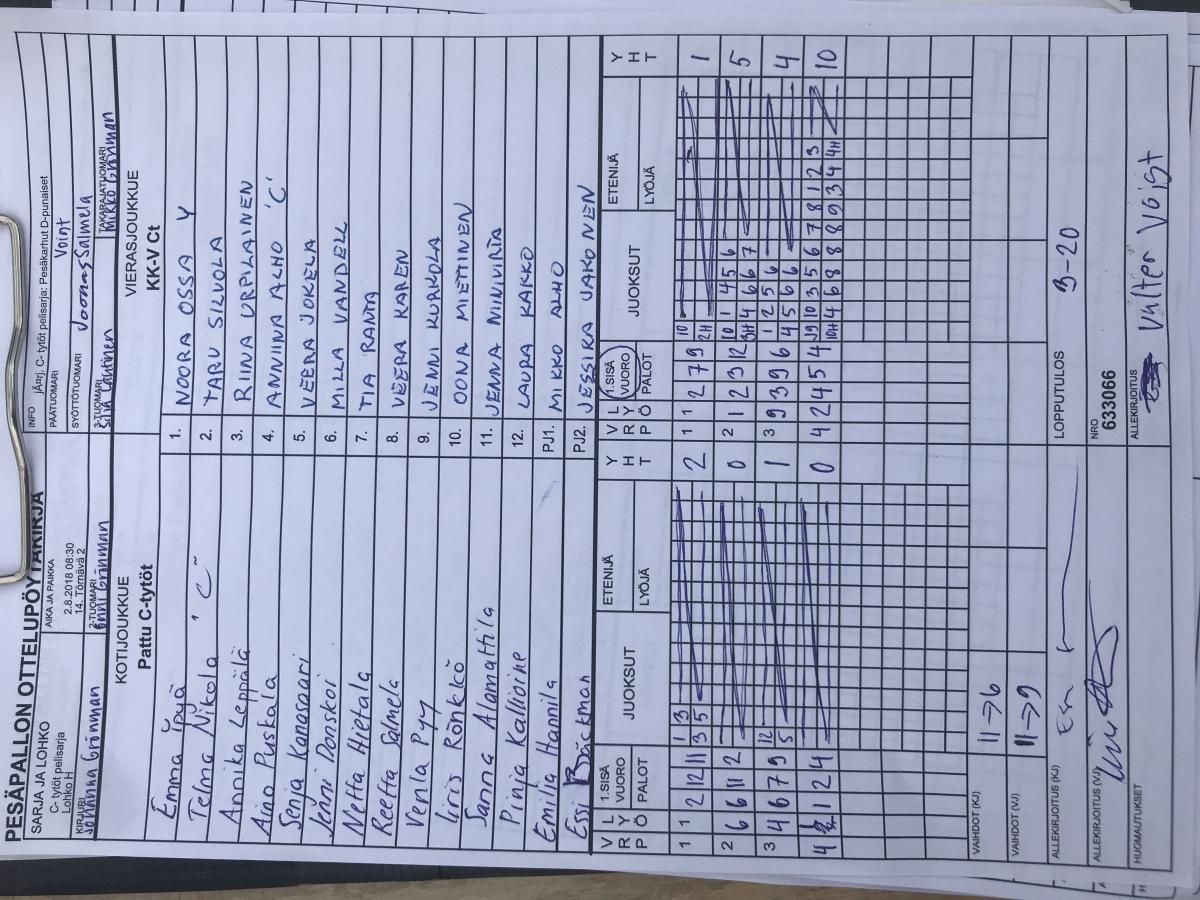 PESÄPALLON OTTELUPÖYTÄKIRJA
SARJA JA LOHKO
C- tytöt pelisarja
Lohko H
AIKA JA PAIKKA
2.8.2018 08:30
14. Törnävä 2
INFO järj. C- tytöt pelisarja: Pesäkarhut D-punaiset
PÄÄTUOMARI Voint
SYÖTTÖTUOMARI Joonas Salmela
KIRJURI Johanna Grönman
2-TUOMARI Anni Grönman
3-TUOMARI Silja Lantinen
TAKARAJATUOMARI Mikko Grönman
KOTIJOUKKUE
Pattu C-tytöt
VIERASJOUKKUE
KK-V Ct
Emma Ypyä 1. NOORA OSSA Y
Telma Nikola "C" 2. TARU SILVOLA
Annika Leppälä 3. RIINA URPILAINEN
Aino Puskala 4. ANNIINA ALHO 'C'
Senja Kanasaari 5. VEERA JOKELA
Jenni Donskoi 6. MILLA VANDELL
Netta Hietala 7. TIA RANTA
Reetta Salmela 8. VEERA KAREN
Venla Pyy 9. JENNI KURKOLA
Iiris Rönkkö 10. OONA MIETTINEN
Sanna Alamattila 11. JENNA NINIVIRTA
Pinja Kallioine 12. LAURA KAKKO
Emilia Hannila PJ1. MIKKO ALHO
Essi Bäckman PJ2. JESSIKA JAKONEN
V R P L Y Ö 1.SISÄ VUORO PALOT JUOKSUT ETENIJÄ LYÖJÄ Y H T
V R P L Y Ö 1.SISÄ VUORO PALOT JUOKSUT ETENIJÄ LYÖJÄ Y H T
1 1 2 12 11 1 3 2 1 1 2 7 9 10 1
3 5 2H
2 6 6 11 2 0 2 1 2 3 12 10 1 4 5 6 5
3H 4 6 6 7
3 4 6 7 9 12 1 3 9 3 9 6 1 2 5 6 4
5 4 5 6 6
4 1 2 4 0 4 2 4 5 4 9 10 3 5 6 7 8 1 2 3 10
10H 4 6 8 8 8 9 3 4 4H
VAIHDOT (KJ) 11->6
VAIHDOT (VJ) 11->9
ALLEKIRJOITUS (KJ)
LOPPUTULOS 3-20
ALLEKIRJOITUS (VJ)
NRO
633066
HUOMAUTUKSET
ALLEKIRJOITUS Valter Voist